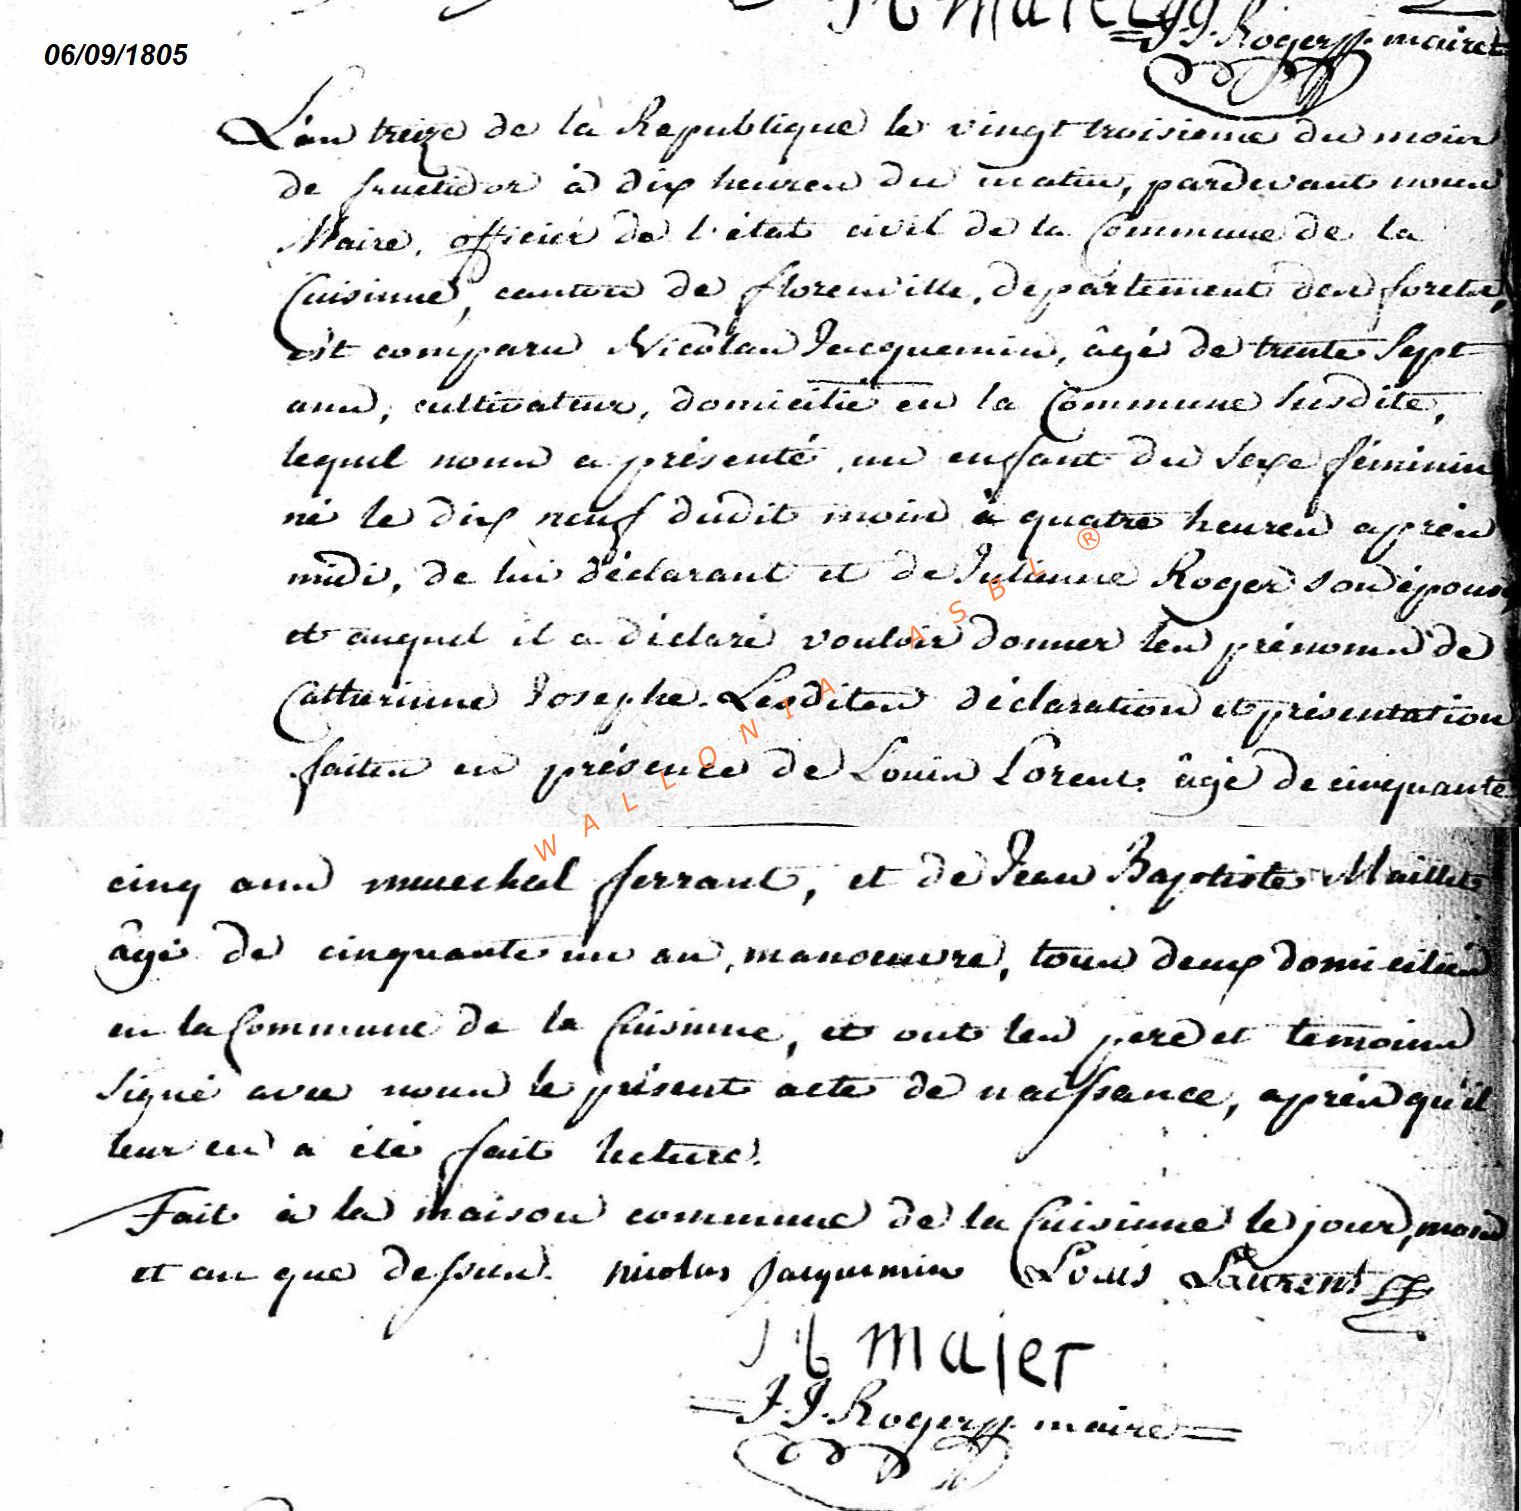 06/09/1805
J. J. Roger maire
L'an treize de la Republique le vingt troisieme du mois
de fructidor à dix heures du matin, pardevant nous
Maire, officier de l'état civil de la Commune de la
Cuisinne, canton de florenville, departement des forets,
est comparu Nicolas Jacquemin, âgé de trente Sept
ans, cultivateur, domicilié en la Commune susdite,
lequel nous a présenté un enfant du sexe féminin
né le dix neuf dudit mois à quatre heures après
midi, de lui déclarant et de Julianne Roger son épouse
et auquel il a déclaré vouloir donner les prénoms de
Catherinne Josephe. Lesdites déclaration et présentation
faites en présence de Louis Lorent âgé de cinquante
cinq ans marechal ferrant, et de Jean Baptiste Maillet
âgé de cinquante un an, manoeuvre, tous deux domiciliés
en la Commune de la Cuisinne, et ont les pere et temoins
signé avec nous le présent acte de naissance, après qu'il
leur en a été fait lecture.
Fait à la maison commune de la Cuisinne le jour, mois
et an que dessus. nicolas jacquemin Louis Laurent
majer
J. J. Roger maire
WALLONIA ASBL ®